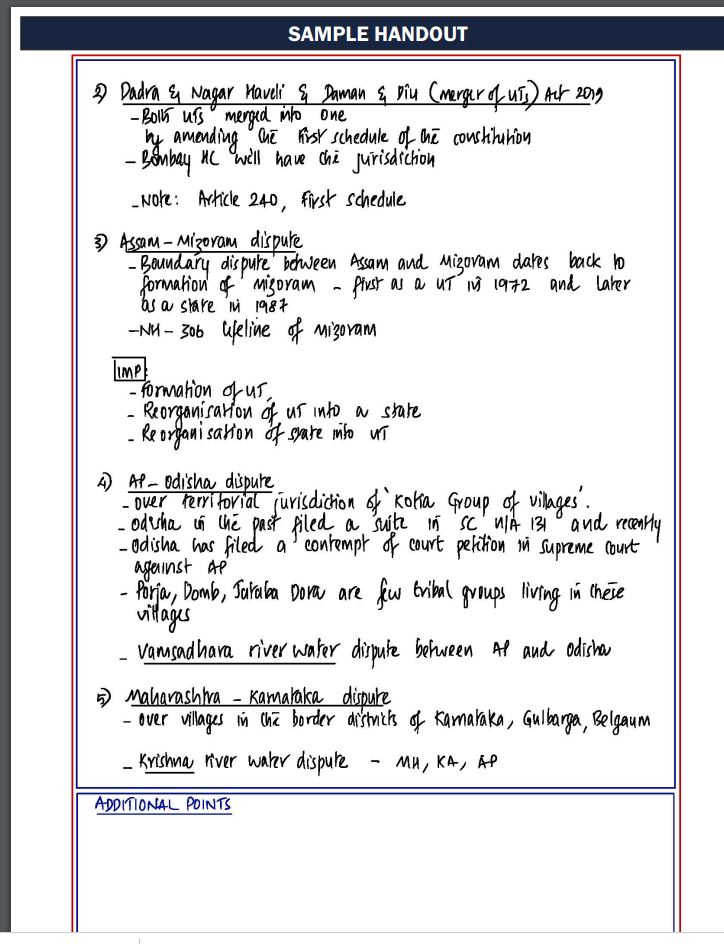 SAMPLE HANDOUT
2) Dadra & Nagar Haveli & Daman & Diu (merger of UTs) Act 2019
- Both UTs merged into one
by amending the First schedule of the constitution
- Bombay HC will have the jurisdiction
- Note: Article 240, First schedule
3) Assam - Mizoram dispute
- Boundary dispute between Assam and Mizoram dates back to
formation of Mizoram - first as a UT in 1972 and later
as a state in 1987
- NH - 306 lifeline of Mizoram
IMP:
- Formation of UT
- Reorganisation of UT into a state
- Reorganisation of state into UT
4) AP - Odisha dispute
- over territorial jurisdiction of 'Kotia Group of villages'.
- Odisha in the past filed a suite in SC u/A 131 and recently
- Odisha has filed a contempt of court petition in Supreme Court
against AP
- Porja, Domb, Jataba Dora are few tribal groups living in these
villages
- Vamsadhara river water dispute between AP and Odisha
5) Maharashtra - Karnataka dispute
- over villages in the border districts of Karnataka, Gulbarga, Belgaum
- Krishna river water dispute - MH, KA, AP
ADDITIONAL POINTS